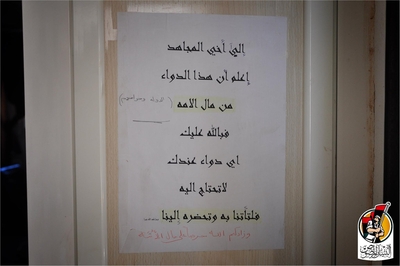 إلى أخي المجاهد
إعلم ان هذا الدواء
من مال الامه
فبالله عليك
اي دواء عندك
لاتحتاج اليه
فلتأتنا به وتحضره إلينا